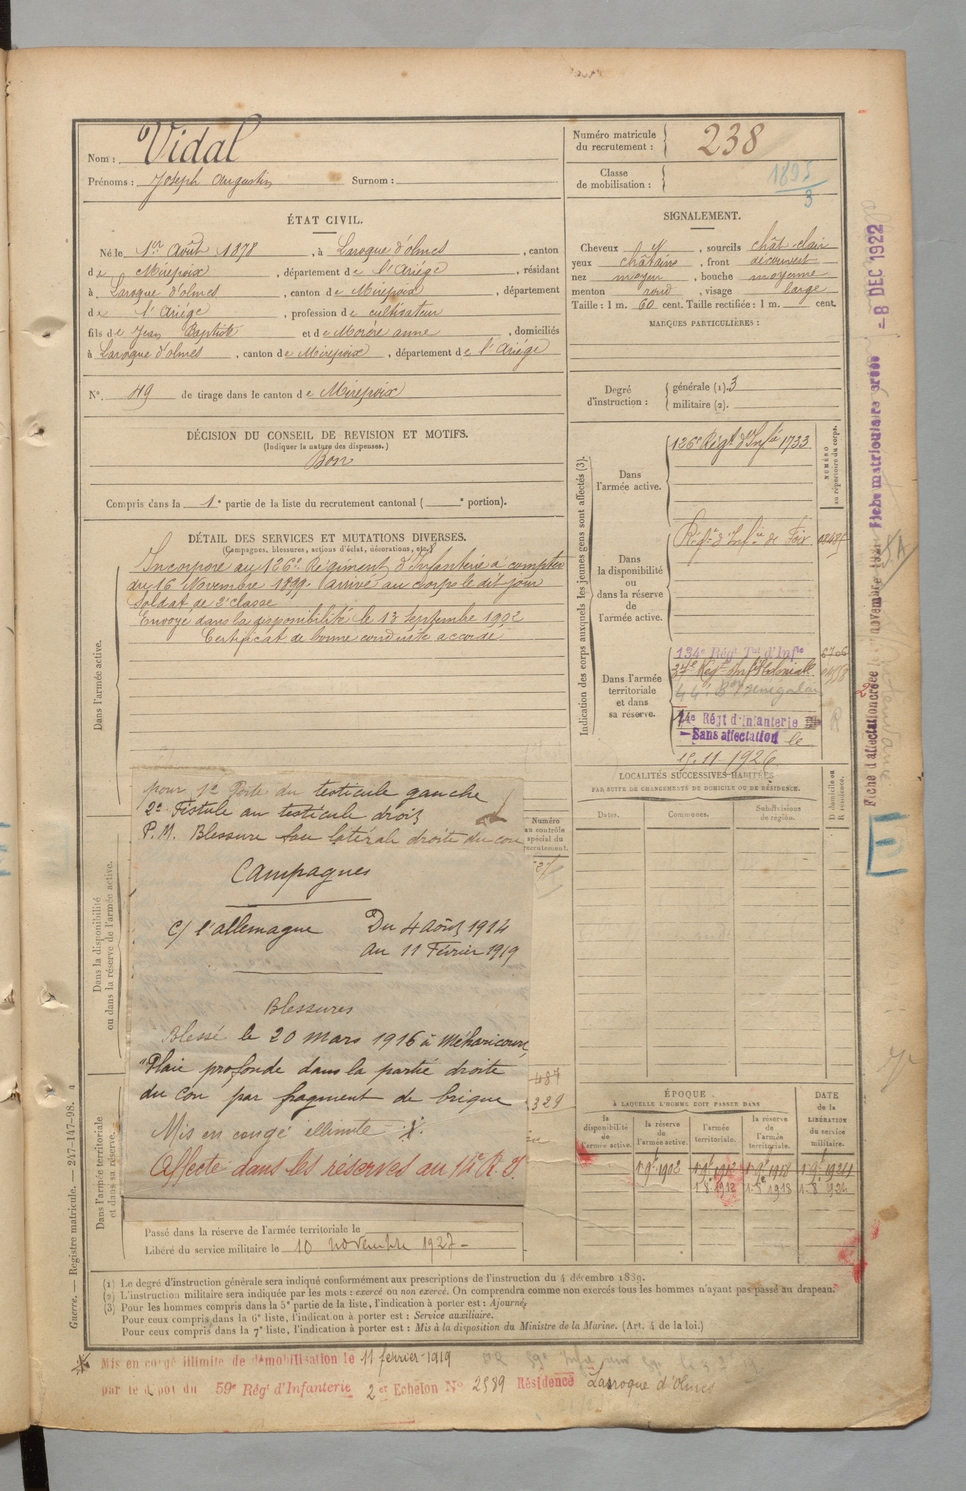 Nom : Vidal
Prénoms : Joseph Augustin Surnom :
Numéro matricule du recrutement : 238
Classe de mobilisation : 1895
3
ÉTAT CIVIL.
Né le 1er Août 1878, à Laroque d'olmes, canton
de Mirepoix, département de l'Ariége, résidant
à Laroque d'olmes, canton de Mirepoix, département
de l'Ariége, profession de cultivateur
fils de Jean Baptiste et de Morère anne, domiciliés
à Laroque d'olmes, canton de Mirepoix, département de l'Ariége
N° 49 de tirage dans le canton de Mirepoix
SIGNALEMENT.
Cheveux et, sourcils chât clair
yeux châtains, front découvert
nez moyen, bouche moyenne
menton rond, visage large
Taille : 1 m. 60 cent. Taille rectifiée : 1 m. cent.
MARQUES PARTICULIÈRES :
Degré d'instruction : générale (1). 3
militaire (2).
DÉCISION DU CONSEIL DE REVISION ET MOTIFS.
(Indiquer la nature des dispenses.)
Bon
Compris dans la 1e partie de la liste du recrutement cantonal ( e portion).
DÉTAIL DES SERVICES ET MUTATIONS DIVERSES.
(Campagnes, blessures, actions d'éclat, décorations, etc.)
Dans l'armée active.
Incorporé au 126e Régiment d'Infanterie à compter
du 16 Novembre 1899 arrivé au corps le dit jour
Soldat de 2e classe
Envoyé dans la disponibilité le 13 Septembre 1902
Certificat de bonne conduite accordé
Indication des corps auxquels les jeunes gens sont affectés (3).
NUMÉRO au répertoire du corps.
Dans l'armée active.
126e Régt d'Infie 1733
Dans la disponibilité ou dans la réserve de l'armée active.
Régt d'Infie de Foix
Dans l'armée territoriale et dans sa réserve.
134e Régt Tal d'Infie
37e Régt Infie Coloniale
44e Bon Sénégalais
14e Régt d'Infanterie
Sans affectation le
15.11.1926
LOCALITÉS SUCCESSIVES HABITÉES
PAR SUITE DE CHANGEMENTS DE DOMICILE OU DE RÉSIDENCE.
Dates. Communes. Subdivisions de région. D. domicile ou R. résidence.
Dans la disponibilité ou dans la réserve de l'armée active.
Numéro au contrôle spécial du recrutement.
pour 1° Perte du testicule gauche
2° Fistule au testicule droit
P.M. Blessure face latérale droite du cou
Campagnes
C/ l'allemagne Du 4 août 1914
au 11 Février 1919
Blessures
Blessé le 20 mars 1916 à Méharicourt
"Plaie profonde dans la partie droite
du cou par fragment de brique
Mis en congé illimité
Affecté dans les réserves au 14e R.I.
487
329
Dans l'armée territoriale et dans sa réserve.
Passé dans la réserve de l'armée territoriale le
Libéré du service militaire le 10 novembre 1927
ÉPOQUE
À LAQUELLE L'HOMME DOIT PASSER DANS
la disponibilité de l'armée active. la réserve de l'armée active. l'armée territoriale. la réserve de l'armée territoriale. DATE de la LIBÉRATION du service militaire.
1 9e 1902 1 9e 1912 1 9e 1918 1 9e 1924
1.8.1912 1.8.1918 1.8.1924
(1) Le degré d'instruction générale sera indiqué conformément aux prescriptions de l'instruction du 4 décembre 1889.
(2) L'instruction militaire sera indiquée par les mots : exercé ou non exercé. On comprendra comme non exercés tous les hommes n'ayant pas passé au drapeau.
(3) Pour les hommes compris dans la 5e partie de la liste, l'indication à porter est : Ajourné.
Pour ceux compris dans la 6e liste, l'indication à porter est : Service auxiliaire.
Pour ceux compris dans la 7e liste, l'indication à porter est : Mis à la disposition du Ministre de la Marine. (Art. 4 de la loi.)
Mis en congé illimité de démobilisation le 11 février 1919
par le dépot du 59e Régt d'Infanterie 2er Echelon N° 2589 Résidence Larroque d'Olmes
Guerre. — Registre matricule. — 247-147-98.
Fiche matriculaire créée - 8 DEC 1922